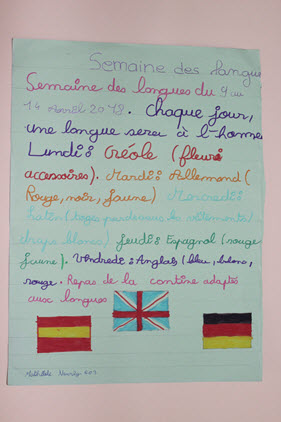 Semaine des langue
Semaine des langues du 9 au
14 avril 2018. Chaque jour,
une langue sera à l'honne
Lundi : Créole (fleuri
accessoires). Mardi : Allemand (
Rouge, noir, jaune) Mercredi :
Latin (toges par dessus les vêtements
draps blancs) Jeudi : Espagnol (rouge
jaune). Vendredi : Anglais (bleu, blanc,
rouge. Repas de la cantine adaptés
aux langues
Mathilde